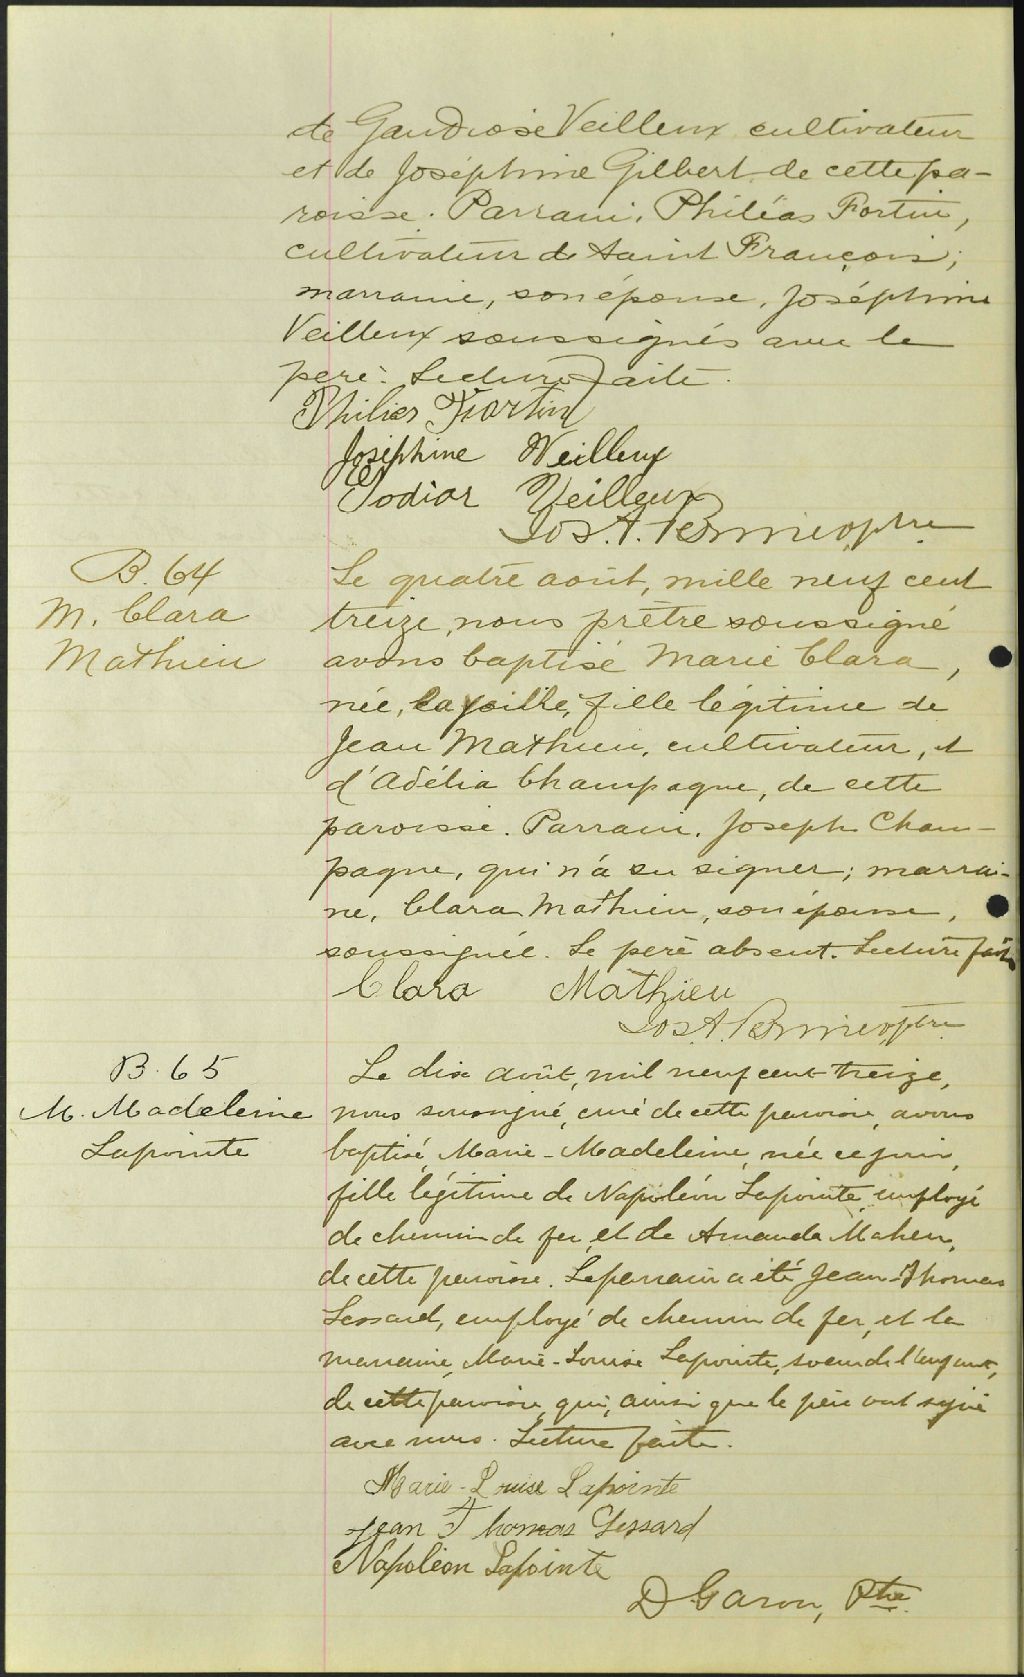 de Gaudiose Veilleux cultivateur
et de Joséphine Gilbert de cette pa-
roisse. Parrain, Philéas Fortin,
cultivateur de Saint François;
marraine, son épouse, Joséphine
Veilleux soussignés avec le
père. Lecture faite.
Philias Fortin
Joséphine Veilleux
Veilleux
Jos. A. ptre
B. 64
M. Clara
Mathieu
Le quatre août, mille neuf cent
treize, nous prêtre soussigné
avons baptisé Marie Clara,
née, la veille, fille légitime de
Jean Mathieu, cultivateur, et
d'Adélia Champagne, de cette
paroisse. Parrain, Joseph Cham-
pagne, qui n'a su signer; marrai-
ne, Clara Mathieu, son épouse,
soussignée. Le père absent. Lecture faite
Clara Mathieu
Jos. A. ptre
B. 65
M. Madeleine
Lapointe
Le dix août, mil neuf cent treize,
nous soussigné, curé de cette paroisse, avons
baptisé Marie-Madeleine, née ce jour,
fille légitime de Napoléon Lapointe employé
de chemin de fer, et de Amanda Maheu,
de cette paroisse. Le parrain a été Jean-Thomas
Lessard, employé de chemin de fer, et la
marraine, Marie-Louise Lapointe, soeur de l'enfant,
de cette paroisse, qui, ainsi que le père ont signé
avec nous. Lecture faite.
Marie-Louise Lapointe
Jean Thomas Lessard
Napoléon Lapointe
D Garon, Ptre